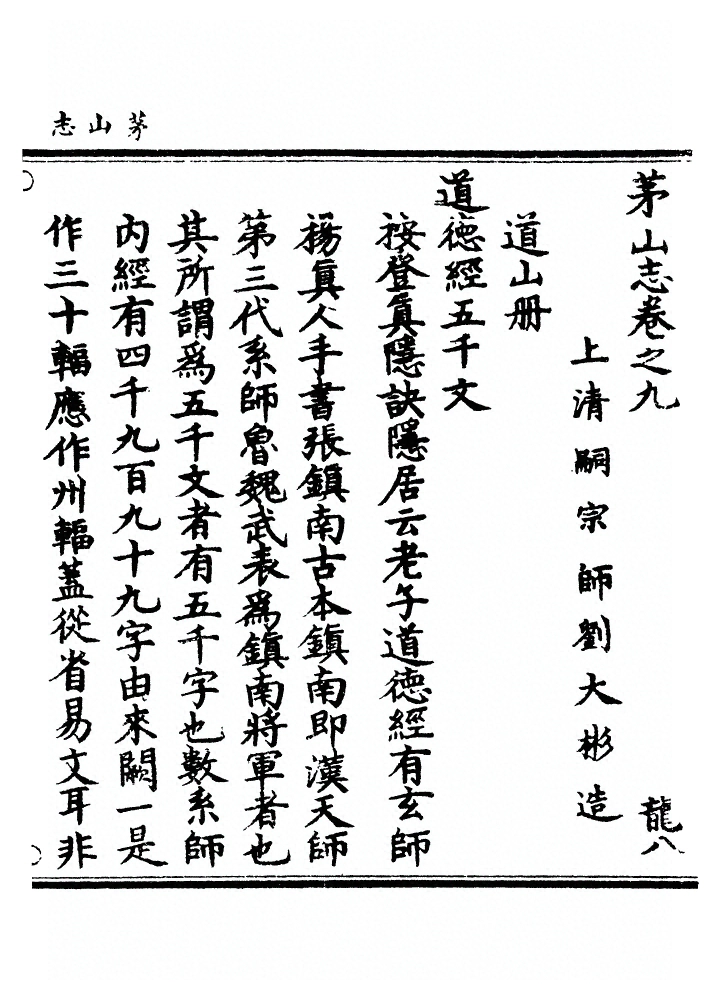 茅山志
茅山志卷之九
龍八
上清嗣宗師劉大彬造
道山册
道德經五千文
按登眞隱訣隱居云老子道德經有玄師
楊眞人手書張鎮南古本鎮南即漢天師
第三代系師魯魏武表爲鎮南將軍者也
其所謂爲五千文者有五千字也數系師
內經有四千九百九十九字由來闕一是
作三十輻應作卅輻蓋從省易文耳非